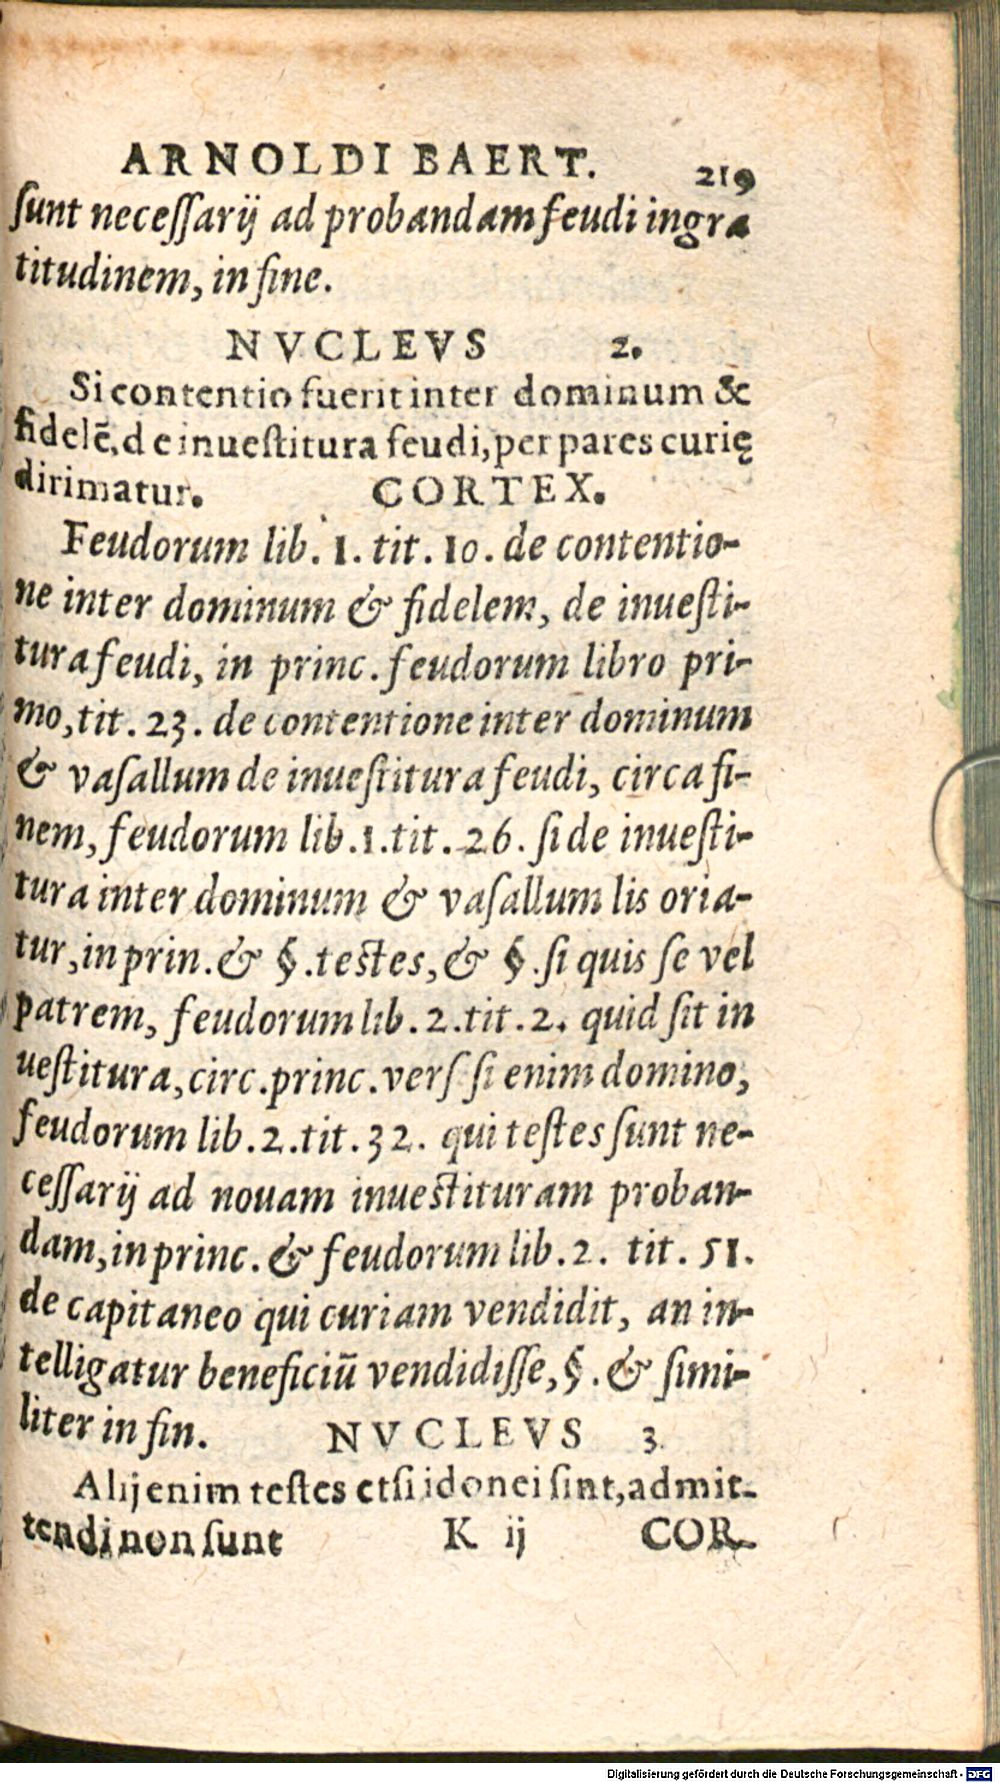 ARNOLDI BAERT. 219
ſunt neceſſarij ad probandam feudi ingra
titudinem, in fine.
NVCLEVS 2.
Si contentio fuerit inter dominum &
fidelē, de inueſtitura feudi, per pares curię
dirimatur. CORTEX.
Feudorum lib. 1. tit. 10. de contentio-
ne inter dominum & fidelem, de inueſti-
tura feudi, in princ. feudorum libro pri-
mo, tit. 23. de contentione inter dominum
& vaſallum de inueſtitura feudi, circa fi-
nem, feudorum lib. 1. tit. 26. ſi de inueſti-
tura inter dominum & vaſallum lis oria-
tur, in prin. & §. teſtes, & §. ſi quis ſe vel
patrem, feudorum lib. 2. tit. 2. quid ſit in
ueſtitura, circ. princ. verſ ſi enim domino,
feudorum lib. 2. tit. 32. qui teſtes ſunt ne-
ceſſarij ad nouam inueſtituram proban-
dam, in princ. & feudorum lib. 2. tit. 51.
de capitaneo qui curiam vendidit, an in-
telligatur beneficiū vendidiſſe, §. & ſimi-
liter in fin. NVCLEVS 3.
Alij enim teſtes etſi idonei ſint, admit-
tendi non ſunt K ij COR-
Digitalisierung gefördert durch die Deutsche Forschungsgemeinschaft - DFG